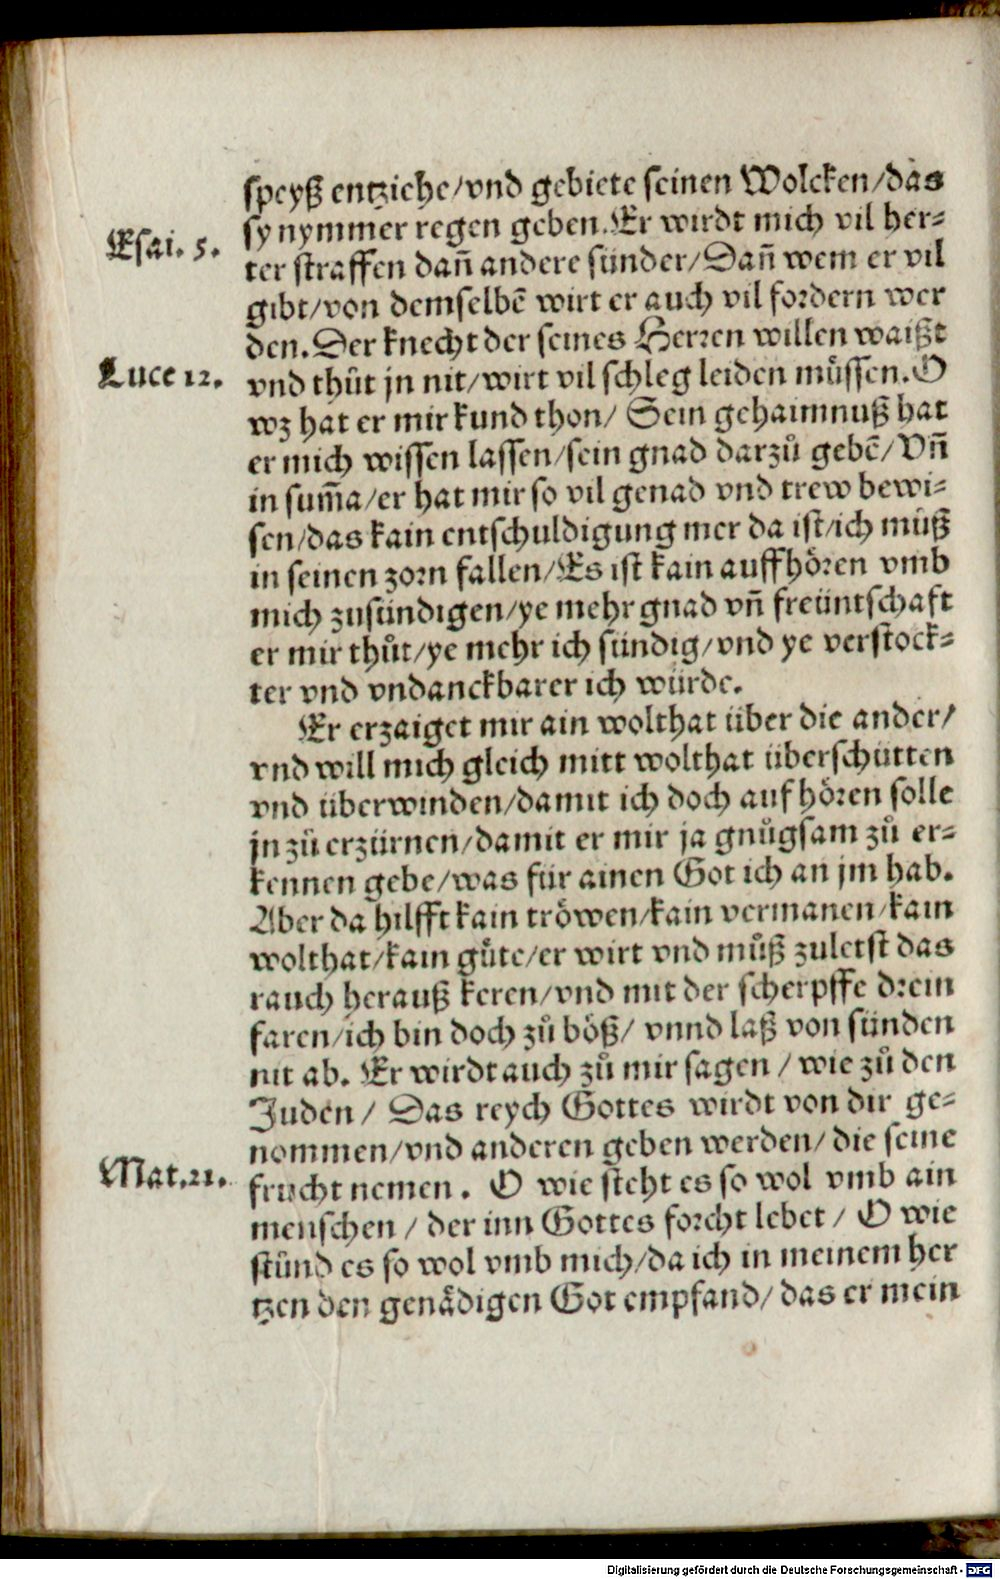 speyß entziehe/vnd gebiete seinen Wolcken/das
sy nymmer regen geben.Er wirdt mich vil her-
Esai. 5.
ter straffen dañ andere sünder/Dañ wem er vil
gibt/von demselbē wirt er auch vil fordern wer
den.Der knecht der seines Herren willen waißt
Luce 12.
vnd thůt jn nit/wirt vil schleg leiden müssen.O
wz hat er mir kund thon/ Sein gehaimnuß hat
er mich wissen lassen/sein gnad darzů gebē/ Vñ
in sum̄a/er hat mir so vil genad vnd trew bewi-
sen/das kain entschuldigung mer da ist/ich můß
in seinen zorn fallen/Es ist kain auffhören vmb
mich zusündigen/ye mehr gnad vñ freüntschaft
er mir thůt/ye mehr ich sündig/vnd ye verstock-
ter vnd vndanckbarer ich würde.
Er erzaiget mir ain wolthat über die ander/
vnd will mich gleich mitt wolthat überschütten
vnd überwinden/damit ich doch auf hören solle
jn zů erzürnen/damit er mir ja gnůgsam zů er-
kennen gebe/was für ainen Got ich an jm hab.
Aber da hilfft kain tröwen/kain vermanen/kain
wolthat/kain güte/er wirt vnd můß zuletst das
rauch herauß keren/vnd mit der scherpffe drein
faren/ich bin doch zů böß/ vnnd laß von sünden
nit ab. Er wirdt auch zů mir sagen / wie zů den
Juden / Das reych Gottes wirdt von dir ge-
nommen/vnd anderen geben werden/ die seine
Mat.21.
frucht nemen. O wie steht es so wol vmb ain
menschen / der inn Gottes forcht lebet / O wie
stünd es so wol vmb mich/da ich in meinem her
tzen den genädigen Got empfand/ das er mein
Digitalisierung gefördert durch die Deutsche Forschungsgemeinschaft - DFG